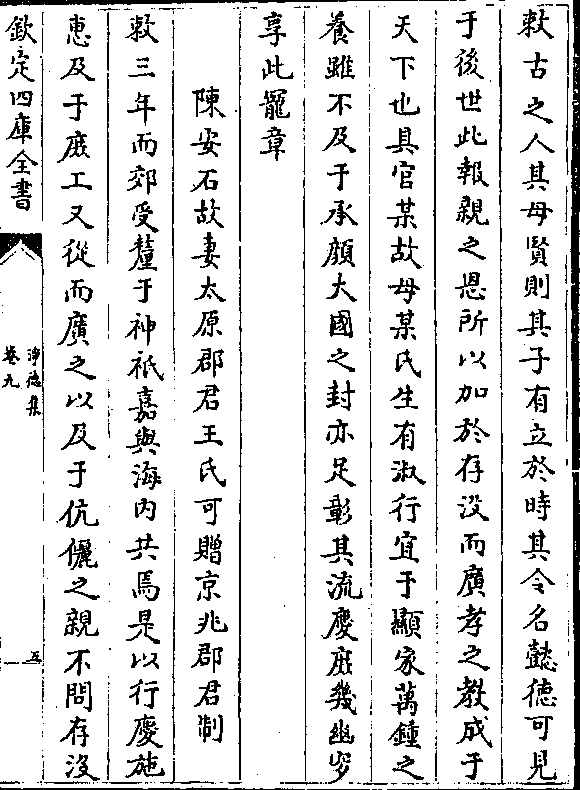 敕古之人其母賢則其子有立於時其令名懿德可見
于後世此報親之恩所以加於存没而廣孝之教成于
天下也具官某故母某氏生有淑行宜于顯家萬鍾之
養雖不及于承顔大國之封亦足彰其流慶庶幾幽穸
享此寵章
陳安石故妻太原郡君王氏可贈京兆郡君制
敕三年而郊受釐于神祇嘉與海内共焉是以行慶施
惠及于庶工又從而廣之以及于伉儷之親不問存没
欽定四庫全書
淨德集
卷九
五